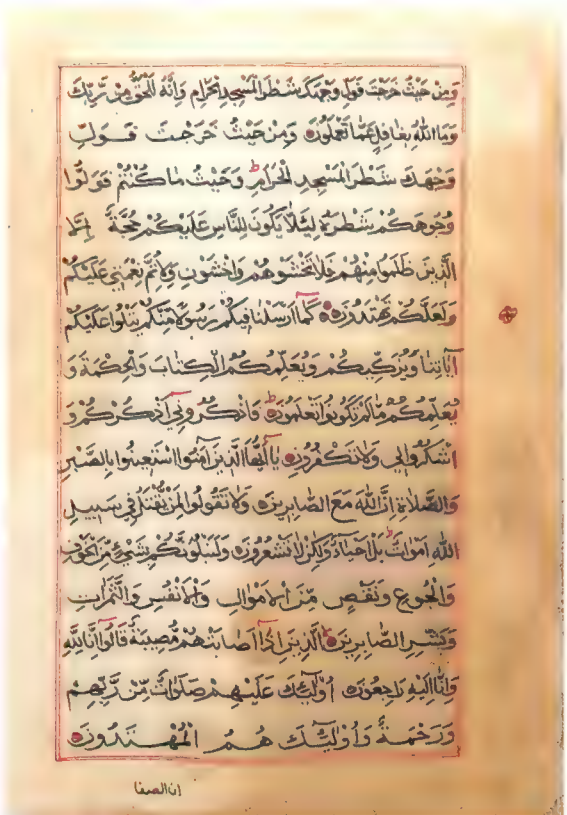 وَمِنْ حَيْثُ خَرَجْتَ فَوَلِّ وَجْهَكَ شَطْرَ الْمَسْجِدِ الْحَرَامِ وَإِنَّهُ لَلْحَقُّ مِنْ رَبِّكَ
وَمَا اللَّهُ بِغَافِلٍ عَمَّا تَعْمَلُونَ وَمِنْ حَيْثُ خَرَجْتَ فَوَلِّ
وَجْهَكَ شَطْرَ الْمَسْجِدِ الْحَرَامِ ط وَحَيْثُ مَا كُنْتُمْ فَوَلُّوا
وُجُوهَكُمْ شَطْرَهُ لِئَلَّا يَكُونَ لِلنَّاسِ عَلَيْكُمْ حُجَّةٌ إِلَّا
الَّذِينَ ظَلَمُوا مِنْهُمْ فَلَا تَخْشَوْهُمْ وَاخْشَوْنِي وَلِأُتِمَّ نِعْمَتِي عَلَيْكُمْ
وَلَعَلَّكُمْ تَهْتَدُونَ كَمَا أَرْسَلْنَا فِيكُمْ رَسُولًا مِنْكُمْ يَتْلُوا عَلَيْكُمْ
آيَاتِنَا وَيُزَكِّيكُمْ وَيُعَلِّمُكُمُ الْكِتَابَ وَالْحِكْمَةَ وَ
يُعَلِّمُكُمْ مَا لَمْ تَكُونُوا تَعْلَمُونَ ط فَاذْكُرُونِي أَذْكُرْكُمْ وَ
اشْكُرُوا لِي وَلَا تَكْفُرُونِ يَا أَيُّهَا الَّذِينَ آمَنُوا اسْتَعِينُوا بِالصَّبْرِ
وَالصَّلَاةِ إِنَّ اللَّهَ مَعَ الصَّابِرِينَ وَلَا تَقُولُوا لِمَنْ يُقْتَلُ فِي سَبِيلِ
اللَّهِ أَمْوَاتٌ ط بَلْ أَحْيَاءٌ وَلَكِنْ لَا تَشْعُرُونَ وَلَنَبْلُوَنَّكُمْ بِشَيْءٍ مِنَ الْخَوْفِ
وَالْجُوعِ وَنَقْصٍ مِّنَ الْأَمْوَالِ وَالْأَنْفُسِ وَالثَّمَرَاتِ
وَبَشِّرِ الصَّابِرِينَ الَّذِينَ إِذَا أَصَابَتْهُمْ مُصِيبَةٌ قَالُوا إِنَّا لِلَّهِ
وَإِنَّا إِلَيْهِ رَاجِعُونَ أُولَئِكَ عَلَيْهِمْ صَلَوَاتٌ مِّنْ رَبِّهِمْ
وَرَحْمَةٌ وَأُولَئِكَ هُمُ الْمُهْتَدُونَ
ان الصفا